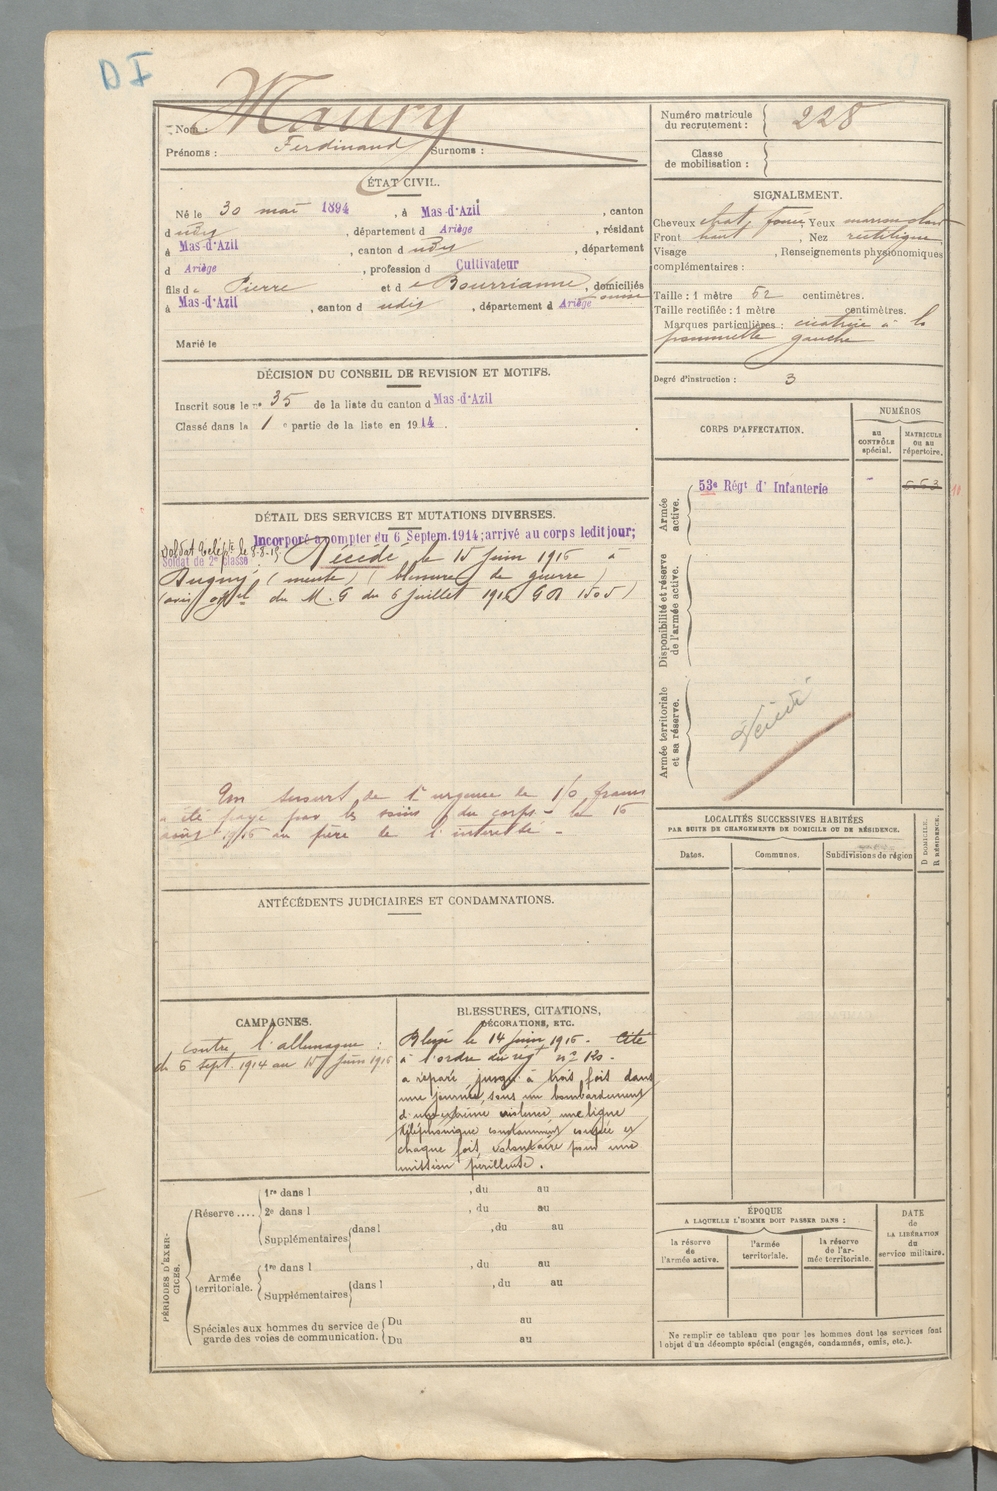 D I
Nom : Maury
Prénoms : Ferdinand Surnoms :
Numéro matricule du recrutement : 228
Classe de mobilisation :
ÉTAT CIVIL.
Né le 30 mai 1894, à Mas-d'Azil, canton
d udit, département d Ariège, résidant
à Mas-d'Azil, canton d udit, département
d Ariège, profession d Cultivateur
fils de Pierre et de Bourrianne, domiciliés
à Mas-d'Azil, canton d udit, département d Ariège
Marié le
SIGNALEMENT.
Cheveux chat. foncé, Yeux marron clair
Front haut, Nez rectiligne
Visage , Renseignements physionomiques
complémentaires :
Taille : 1 mètre 52 centimètres.
Taille rectifiée : 1 mètre centimètres.
Marques particulières : cicatrice à la
pommette gauche
Degré d'instruction : 3
DÉCISION DU CONSEIL DE REVISION ET MOTIFS.
Inscrit sous le n° 35 de la liste du canton d Mas-d'Azil
Classé dans la 1e partie de la liste en 1914.
CORPS D'AFFECTATION.
NUMÉROS
au CONTRÔLE spécial.
MATRICULE ou au répertoire.
Armée active.
53e Régt d' Infanterie
Disponibilité et réserve de l'armée active.
Armée territoriale et sa réserve.
Décédé
DÉTAIL DES SERVICES ET MUTATIONS DIVERSES.
Incorporé à compter du 6 Septem. 1914; arrivé au corps ledit jour;
Soldat de 2e classe
Décédé le 15 juin 1916 à
(Meuse) (blessures de guerre)
(avis offel du M. G du 6 juillet 1916
Un secours de 1re urgence de 150 francs
a été payé par les soins du corps le 16
août 1916 au père de l'intéressé -
LOCALITÉS SUCCESSIVES HABITÉES
PAR SUITE DE CHANGEMENTS DE DOMICILE OU DE RÉSIDENCE.
Dates.
Communes.
Subdivisions de région
D DOMICILE. R RÉSIDENCE.
ANTÉCÉDENTS JUDICIAIRES ET CONDAMNATIONS.
CAMPAGNES.
Contre l'allemagne :
du 6 sept. 1914 au 15 juin 1916
BLESSURES, CITATIONS,
DÉCORATIONS, ETC.
Blessé le 14 juin 1916. Cité
à l'ordre du régt n° 120.
a réparé jusqu'à trois fois dans
une journée, sous un bombardement
d'une extrême violence, une ligne
téléphonique constamment coupée et
chaque fois volontaire pour une
mission périlleuse.
PÉRIODES D'EXERCICES.
Réserve ....
1re dans l , du au
2e dans l , du au
Supplémentaires dans l , du au
Armée territoriale.
1re dans l , du au
Supplémentaires dans l , du au
Spéciales aux hommes du service de garde des voies de communication.
Du au
Du au
ÉPOQUE
A LAQUELLE L'HOMME DOIT PASSER DANS :
la réserve de l'armée active.
l'armée territoriale.
la réserve de l'armée territoriale.
DATE de LA LIBÉRATION du service militaire.
Ne remplir ce tableau que pour les hommes dont les services font
l'objet d'un décompte spécial (engagés, condamnés, omis, etc.).